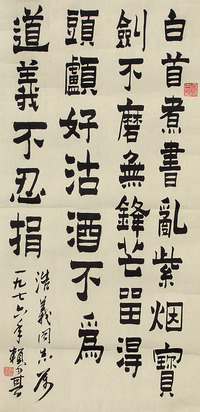 白首煮書亂紫烟寶
劍不磨無鋒芒留得
頭顱好沽酒不爲
道義不忍捐
浩義同志屬
一九七六年賴少其